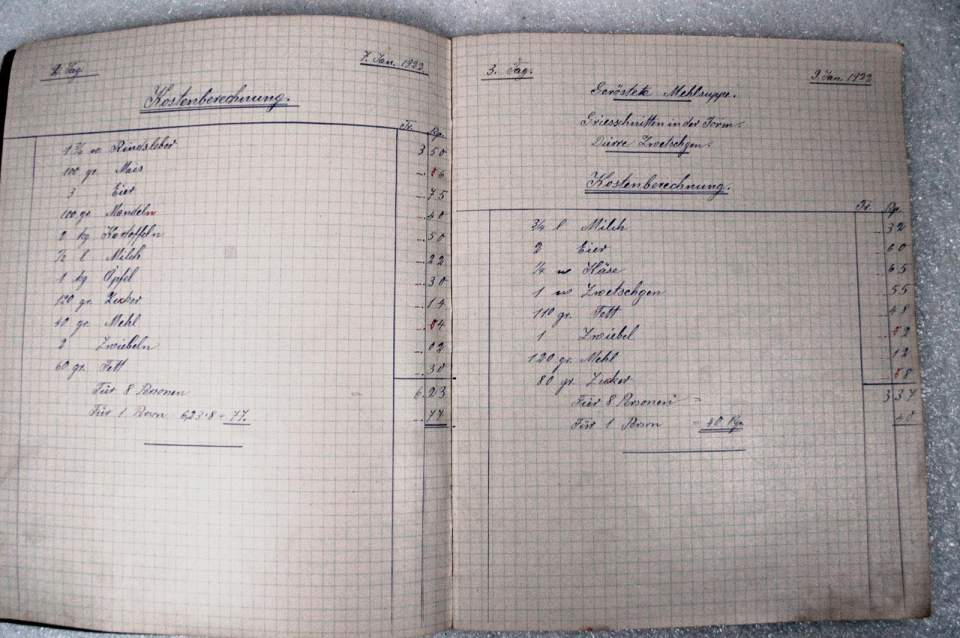 2. Tag. 7. Jan. 1922.
Kostenberechnung.
Fr. Rp.
1 ½ ℔ Rindsleber 3 50
100 gr. Mais 06
3 Eier 75
100 gr. Mandeln 40
2 kg Kartoffeln 50
½ l Milch 22
1 kg Öpfel 30
120 gr. Zucker 14
40 gr. Mehl 04
2 Zwiebeln 02
60 gr. Fett 30
Für 8 Personen = 6.23
Für 1 Person 6,23 : 8 = 77. 77
3. Tag. 9. Jan. 1922
Geröstete Mehlsuppe.
Griesschnitten in der Form.
Dürre Zwetschgen.
Kostenberechnung.
Fr. Rp.
¾ l Milch 32
2 Eier 60
¼ ℔ Käse 65
1 ℔ Zwetschgen 55
110 gr. Fett
1 Zwiebel
120 gr. Mehl 12
80 gr. Zucker 08
Für 8 Personen = 3 37
Für 1 Person = 40 Rp. 40